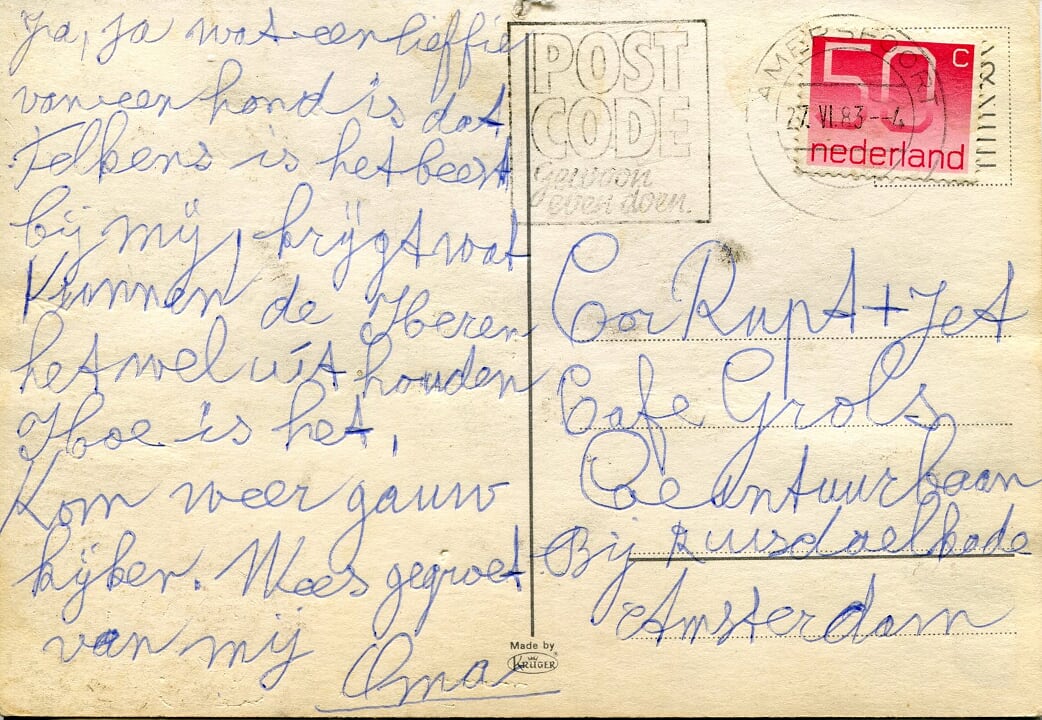 Ja, Ja wat een lieffie
van een hond is dat
Telkens is het beest
bij mij, krijgt wat
Kunnen de Heren
het wel uit houden
Hoe is het,
Kom weer gauw
kijken. Wees gegroet
van mij
Oma
POST
CODE
gewoon
even doen.
AMERSFOORT
27.VI.83--4
50 c
nederland
Cor Rupt + Jet
Cafe Grols
Ceintuurbaan
Bij Ruisdaelkade
Amsterdam
Made by
KRÜGER